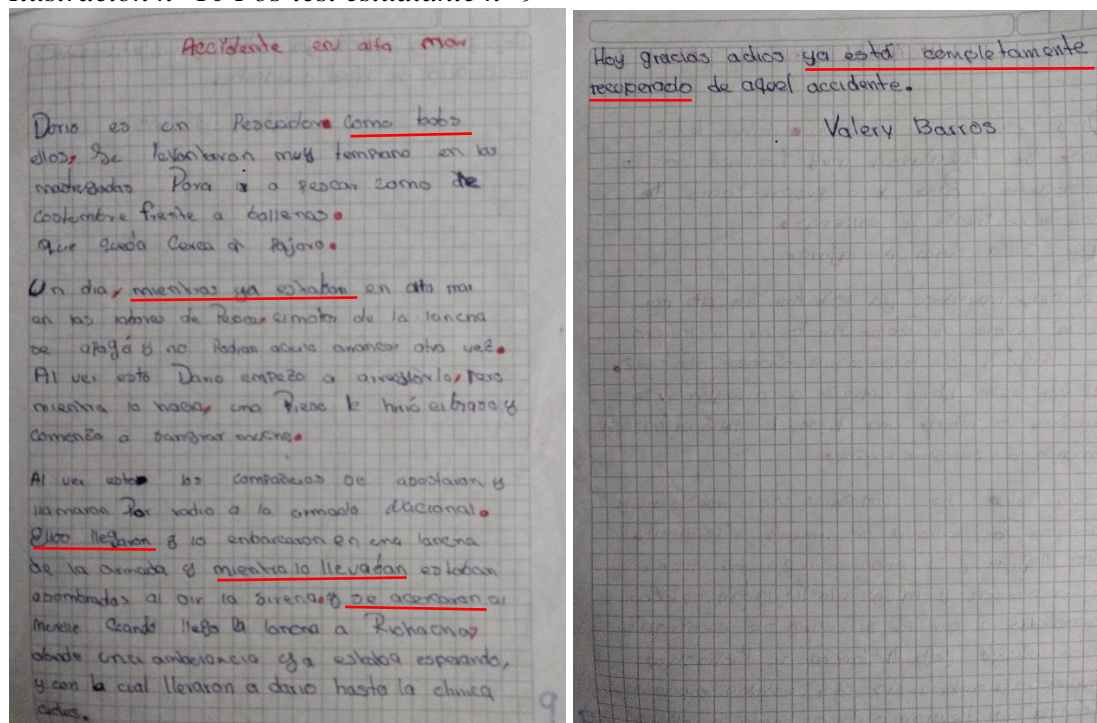 Accidente en alta mar
Dario es un Pescador como todos
ellos, Se levantaron muy temprano en las
madrugadas Para ir a pescar como de
costumbre frente a ballenas.
que queda Cerca a Pajaro.
Un dia, mientras ya estaban en alta mar
en las labores de Pesca, el motor de la lancha
se apagó y no Podian acerlo arrancar otra vez.
Al ver esto Dario empezo a arreglarlo, Pero
mientra lo hacia, una Pieza le hirió el brazo y
comenzo a sangrar mucho.
Al ver esto los compañeros se asostaron y
llamaron Por radio a la armada Nacional.
Ellos llegaron y lo enbarcaron en una lancha
de la armada y mientra lo llevadan estaban
asombrados al oir la sirena, y se acercaron al
muelle Cuando llego la lancha a Riohacha,
donde una ambulancia ya estaba esperando,
y con la cual llevaron a dario hasta la clinica
9
Hoy gracias adios ya está completamente
recuperado de aquel accidente.
Valery Barros